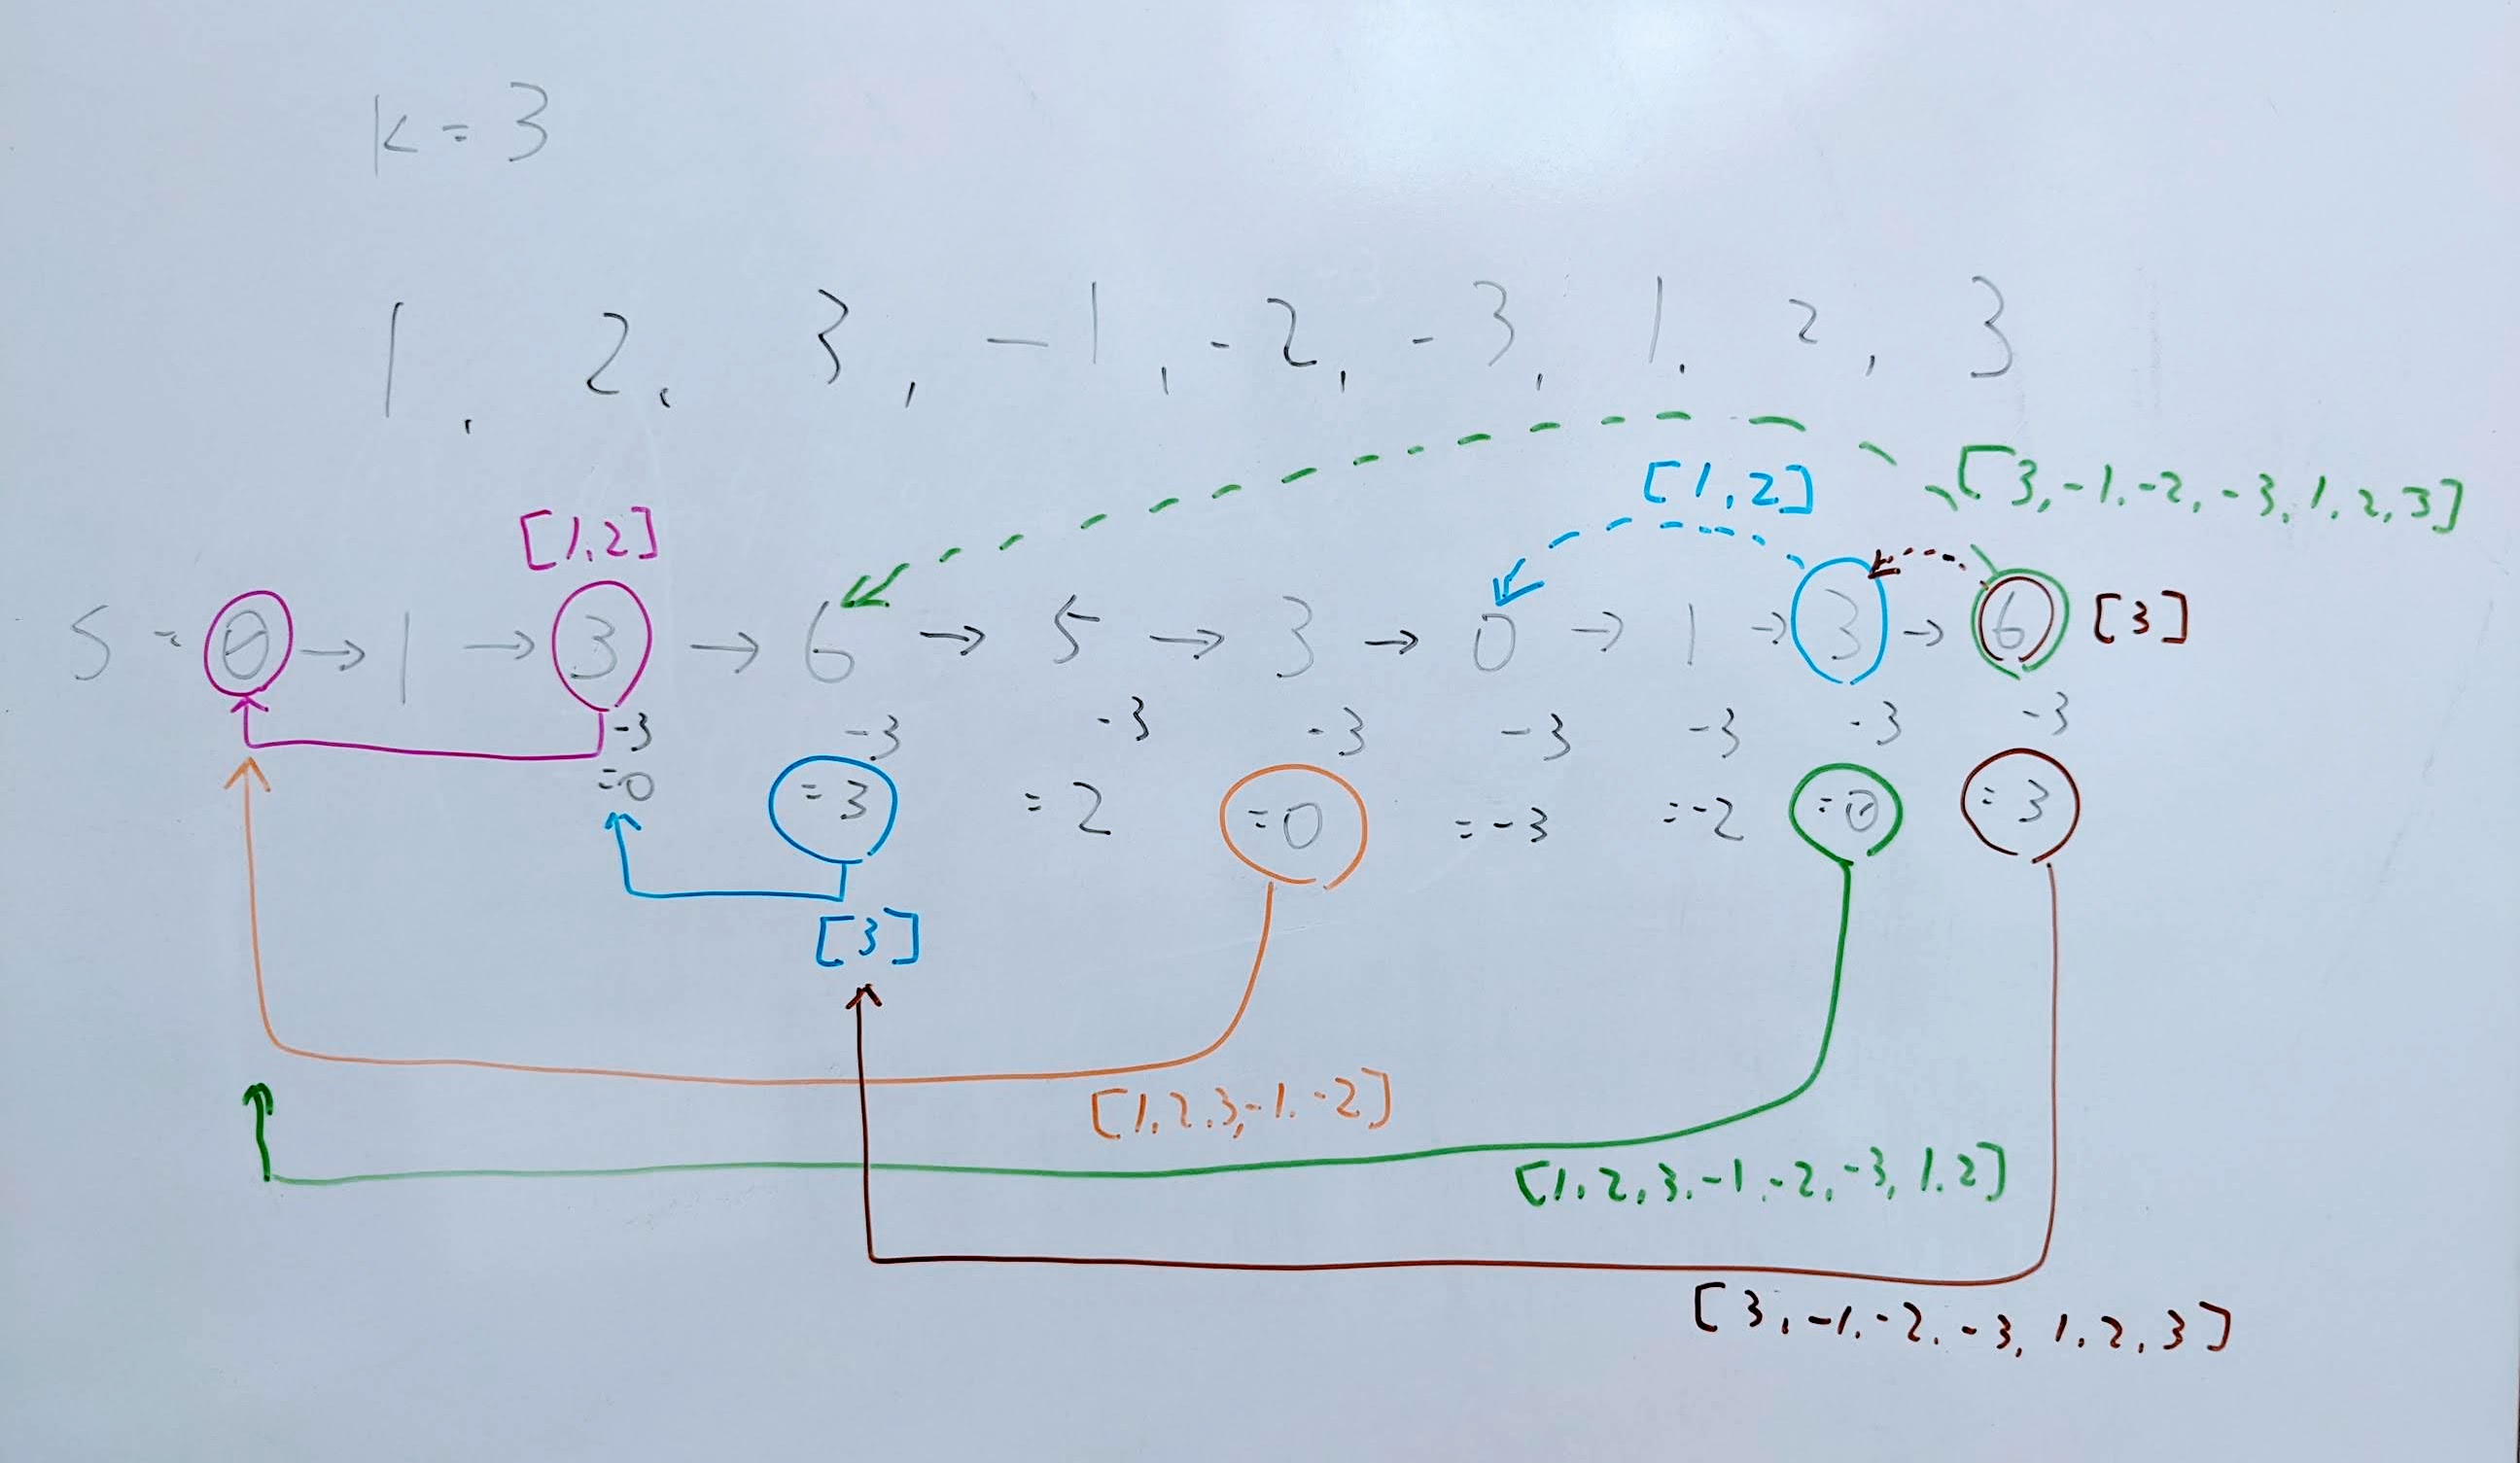 k = 3
1, 2, 3, -1, -2, -3, 1, 2, 3
[1,2]
[3,-1,-2,-3,1,2,3]
[1,2]
S = 0 → 1 → 3 → 6 → 5 → 3 → 0 → 1 → 3 → 6 [3]
-3 -3 -3 -3 -3 -3 -3 -3
=0 =3 =2 =0 =-3 =-2 =0 =3
[3]
[1,2,3,-1,-2]
[1,2,3,-1,-2,-3,1,2]
[3,-1,-2,-3,1,2,3]